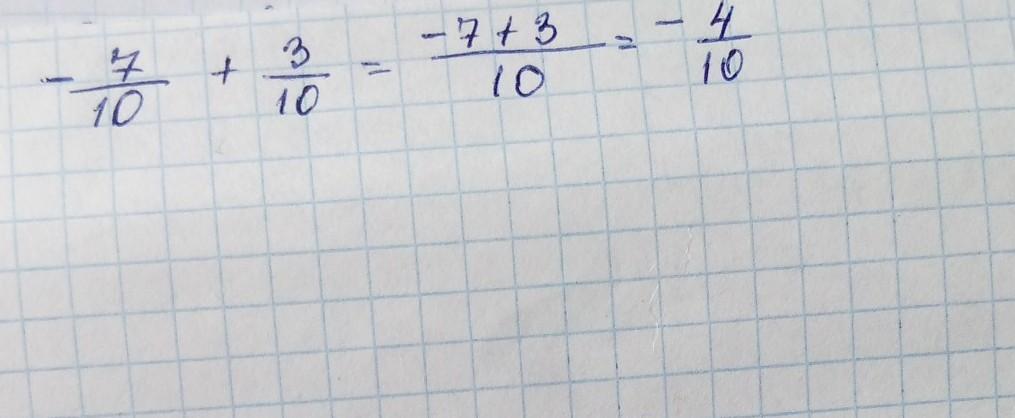 -7/10 + 3/10 = -7+3/10 = -4/10